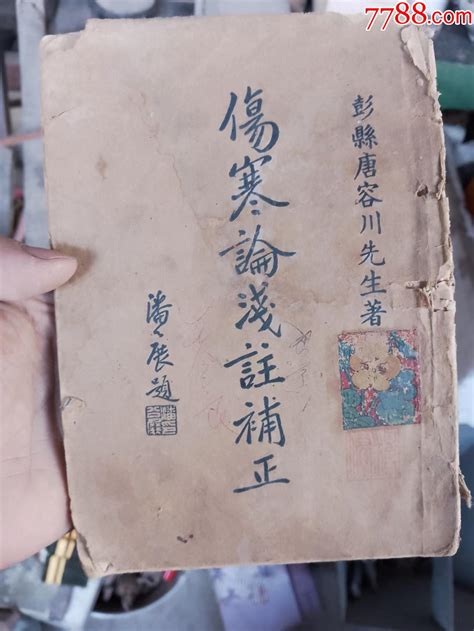 7788.com
彭縣唐容川先生著
傷寒論淺註補正
潘公展題